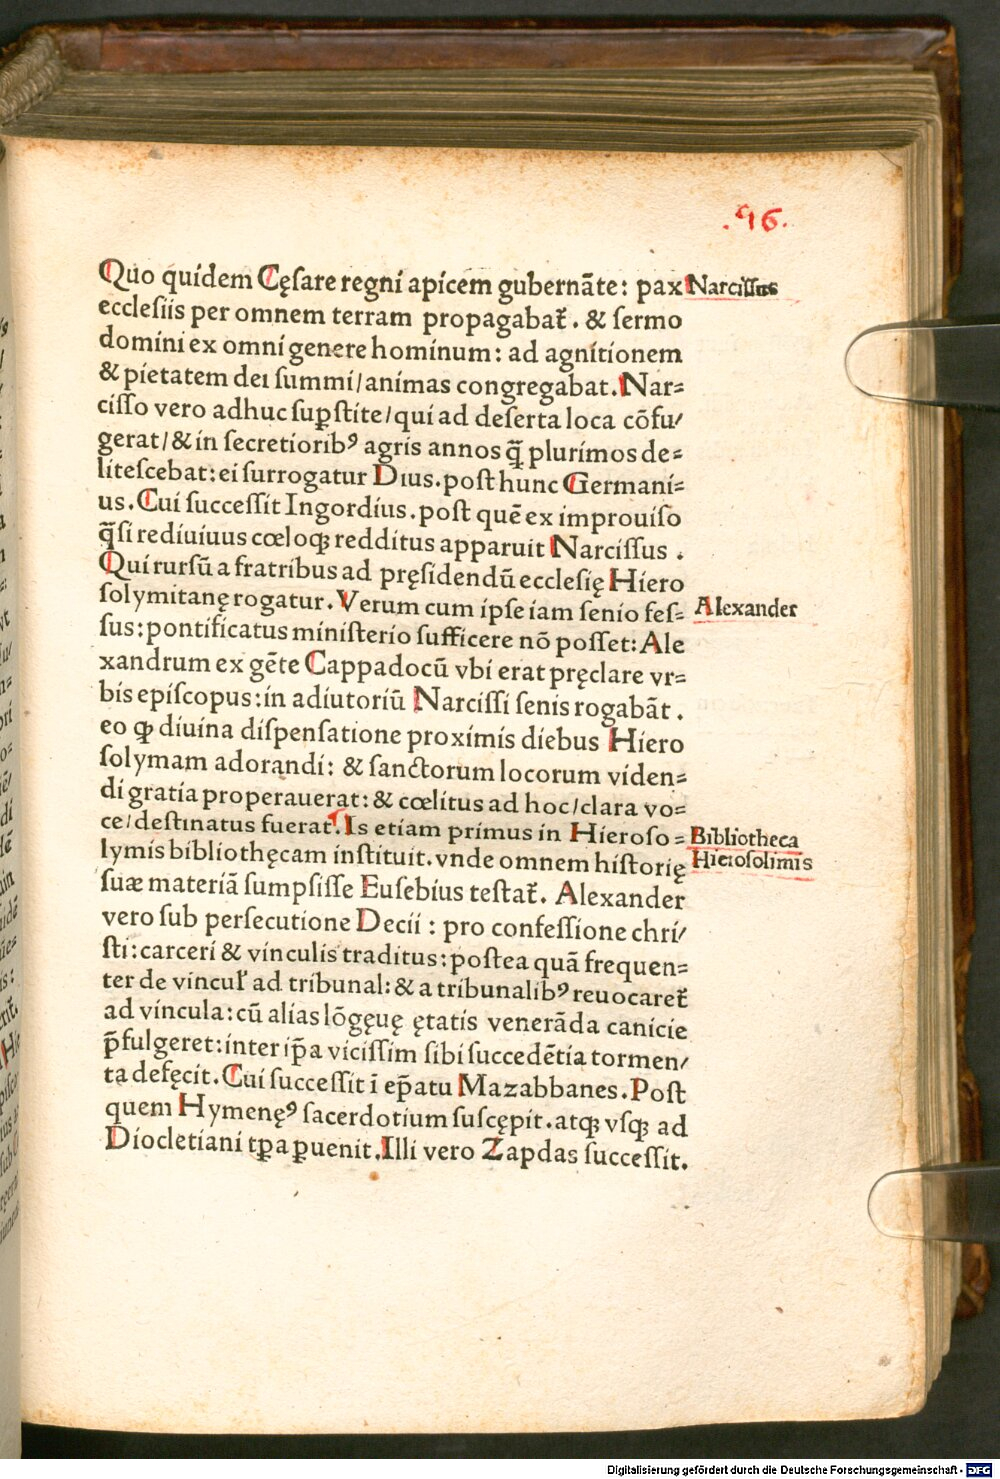 .96.
Quo quidem Cęſare regni apicem gubernāte: pax
Narciſſus
eccleſiis per omnem terram propagabat᷑. & ſermo
domini ex omni genere hominum: ad agnitionem
& pietatem dei ſummi/animas congregabat. Nar⸗
ciſſo vero adhuc ſuꝑſtite/qui ad deſerta loca cōfu/
gerat/& in ſecretioribꝰ agris annos q̄ plurimos de⸗
liteſcebat: ei ſurrogatur Dius. poſt hunc Germani⸗
us. Cui ſucceſſit Ingordius. poſt quē ex improuiſo
q̄ſi rediuiuus cœloqꝫ redditus apparuit Narciſſus .
Qui rurſū a fratribus ad pręſidendū eccleſię Hiero
ſolymitanę rogatur. Verum cum ipſe iam ſenio feſ⸗
Alexander
ſus: pontificatus miniſterio ſufficere nō poſſet: Ale
xandrum ex gēte Cappadocū vbi erat pręclare vr⸗
bis epiſcopus: in adiutoriū Narciſſi ſenis rogabāt .
eo ꝙ diuina diſpenſatione proximis diebus Hiero
ſolymam adorandi: & ſanctorum locorum viden⸗
di gratia properauerat: & cœlitus ad hoc/clara vo⸗
ce/deſtinatus fuerat. Is etiam primus in Hieroſo⸗
Bibliotheca
lymis bibliothęcam inſtituit. vnde omnem hiſtorię
Hieroſolimis
ſuæ materiā ſumpſiſſe Euſebius teſtat᷑. Alexander
vero ſub perſecutione Decii : pro confeſſione chri/
ſti: carceri & vinculis traditus: poſtea quā frequen⸗
ter de vincuł ad tribunal: & a tribunalibꝰ reuocaret᷑
ad vincula: cū alias lōgęuę ętatis venerāda canicie
p̄fulgeret: inter ip̄a viciſſim ſibi ſuccedētia tormen/
ta defęcit. Cui ſucceſſit ī ep̄atu Mazabbanes. Poſt
quem Hymenęꝰ ſacerdotium ſuſcępit. atqꝫ vſqꝫ ad
Diocletiani tꝑa ꝑuenit. Illi vero Zapdas ſucceſſit.
Digitalisierung gefördert durch die Deutsche Forschungsgemeinschaft - DFG